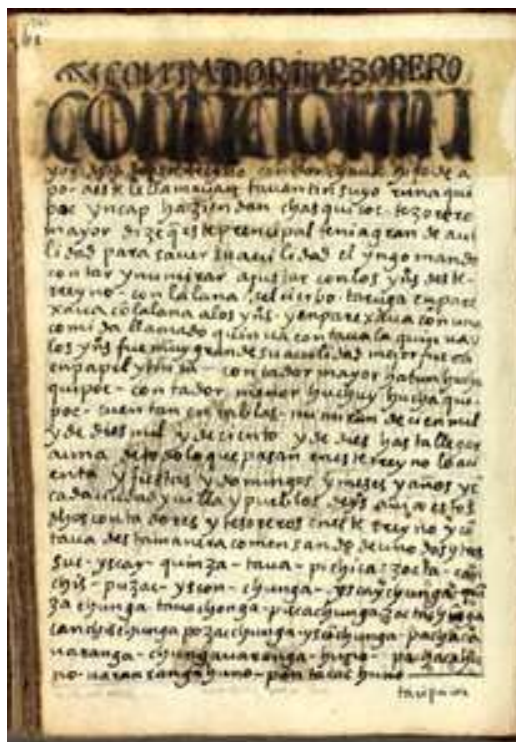 CONTADOR I TEZORERO
este le llamauan tauantin suyo runa qui
poc yncap haziendan chasquicoc tezorero
mayor dize q̃ este prencipal tenia grande aui
lidad para sauer su auilidad el ynga mando
contar y numirar ajustar con los yn̄s deste
rreyno con la lana del cierbo taruga enpare
xaua co la lana a los yn̄s y enparexaua con una
comida llamado quinua contaua la quinua y
los yn̄s fue muy grande su auilidad mejor fuera
en papel y tinta contador mayor hatun hucha
quipoc contador menor huchuy hucha qui
poc cuentan en tablas numiran de cien mil
y de dies mil y de ciento y de dies hasta llegar
a una de todo lo que pasan en este rreyno lo aci
enta y fiestas y domingos y meses y años y en
cada ciudad y uilla y pueblos de yn̄s auia estos
dhos contadores y tesoreros en este rreyno y con
taua desta manera comensando de uno dos y tres
suc yscay quinza taua pichica zocta can
chis puzac yscon chunga yscay chunga quin
za chunga taua chunga pisca chunga zocta chunga
canchis chunga pozac chunga yscon chunga pachaca
uaranga chunga uaranga huno pachaca hu
no uaranga huno pantacac huno